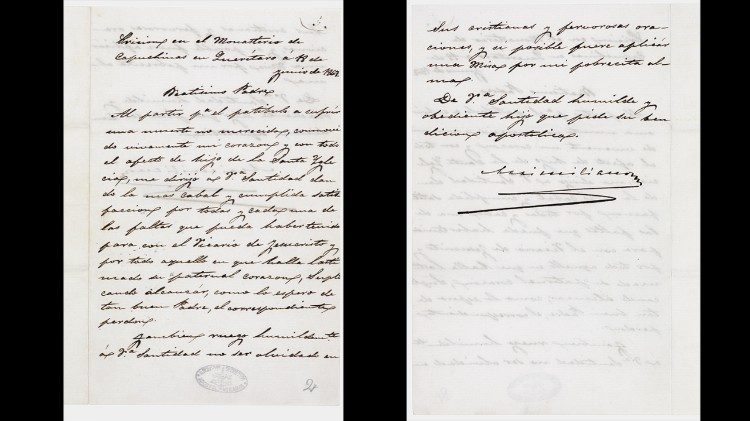 Prision en el Monasterio de
Capuchinas en Querétaro á 18 de
Junio de 1867.
Beatisimo Padre
Al partir pa el patibulo a sufrir
una muerte no merecida, conmovi
do vivamente mi corazon y con todo
el afecto de hijo de la Santa Igle
cia, me dirijo á Va Santidad dan
do la mas cabal y cumplida satis
faccion por todas y cada una de
las faltas que pueda haber tenido
para con el Vicario de Jesucristo y
por todo aquello en que halla lasti
mado su paternal corazon, Supli
cando alcanzar, como lo espero de
tan buen Padre, el correspondiente
perdon.
Tambien ruego humildemte
á Va Santidad no ser olvidad en
Sus cristianas y fervorosas ora
ciones, y si posible fuere aplicar
una Misa por mi pobrecita al-
ma.
De Va Santidad humilde y
obediente hijo que pide su ben
dicion apostolica.
Maximiliano